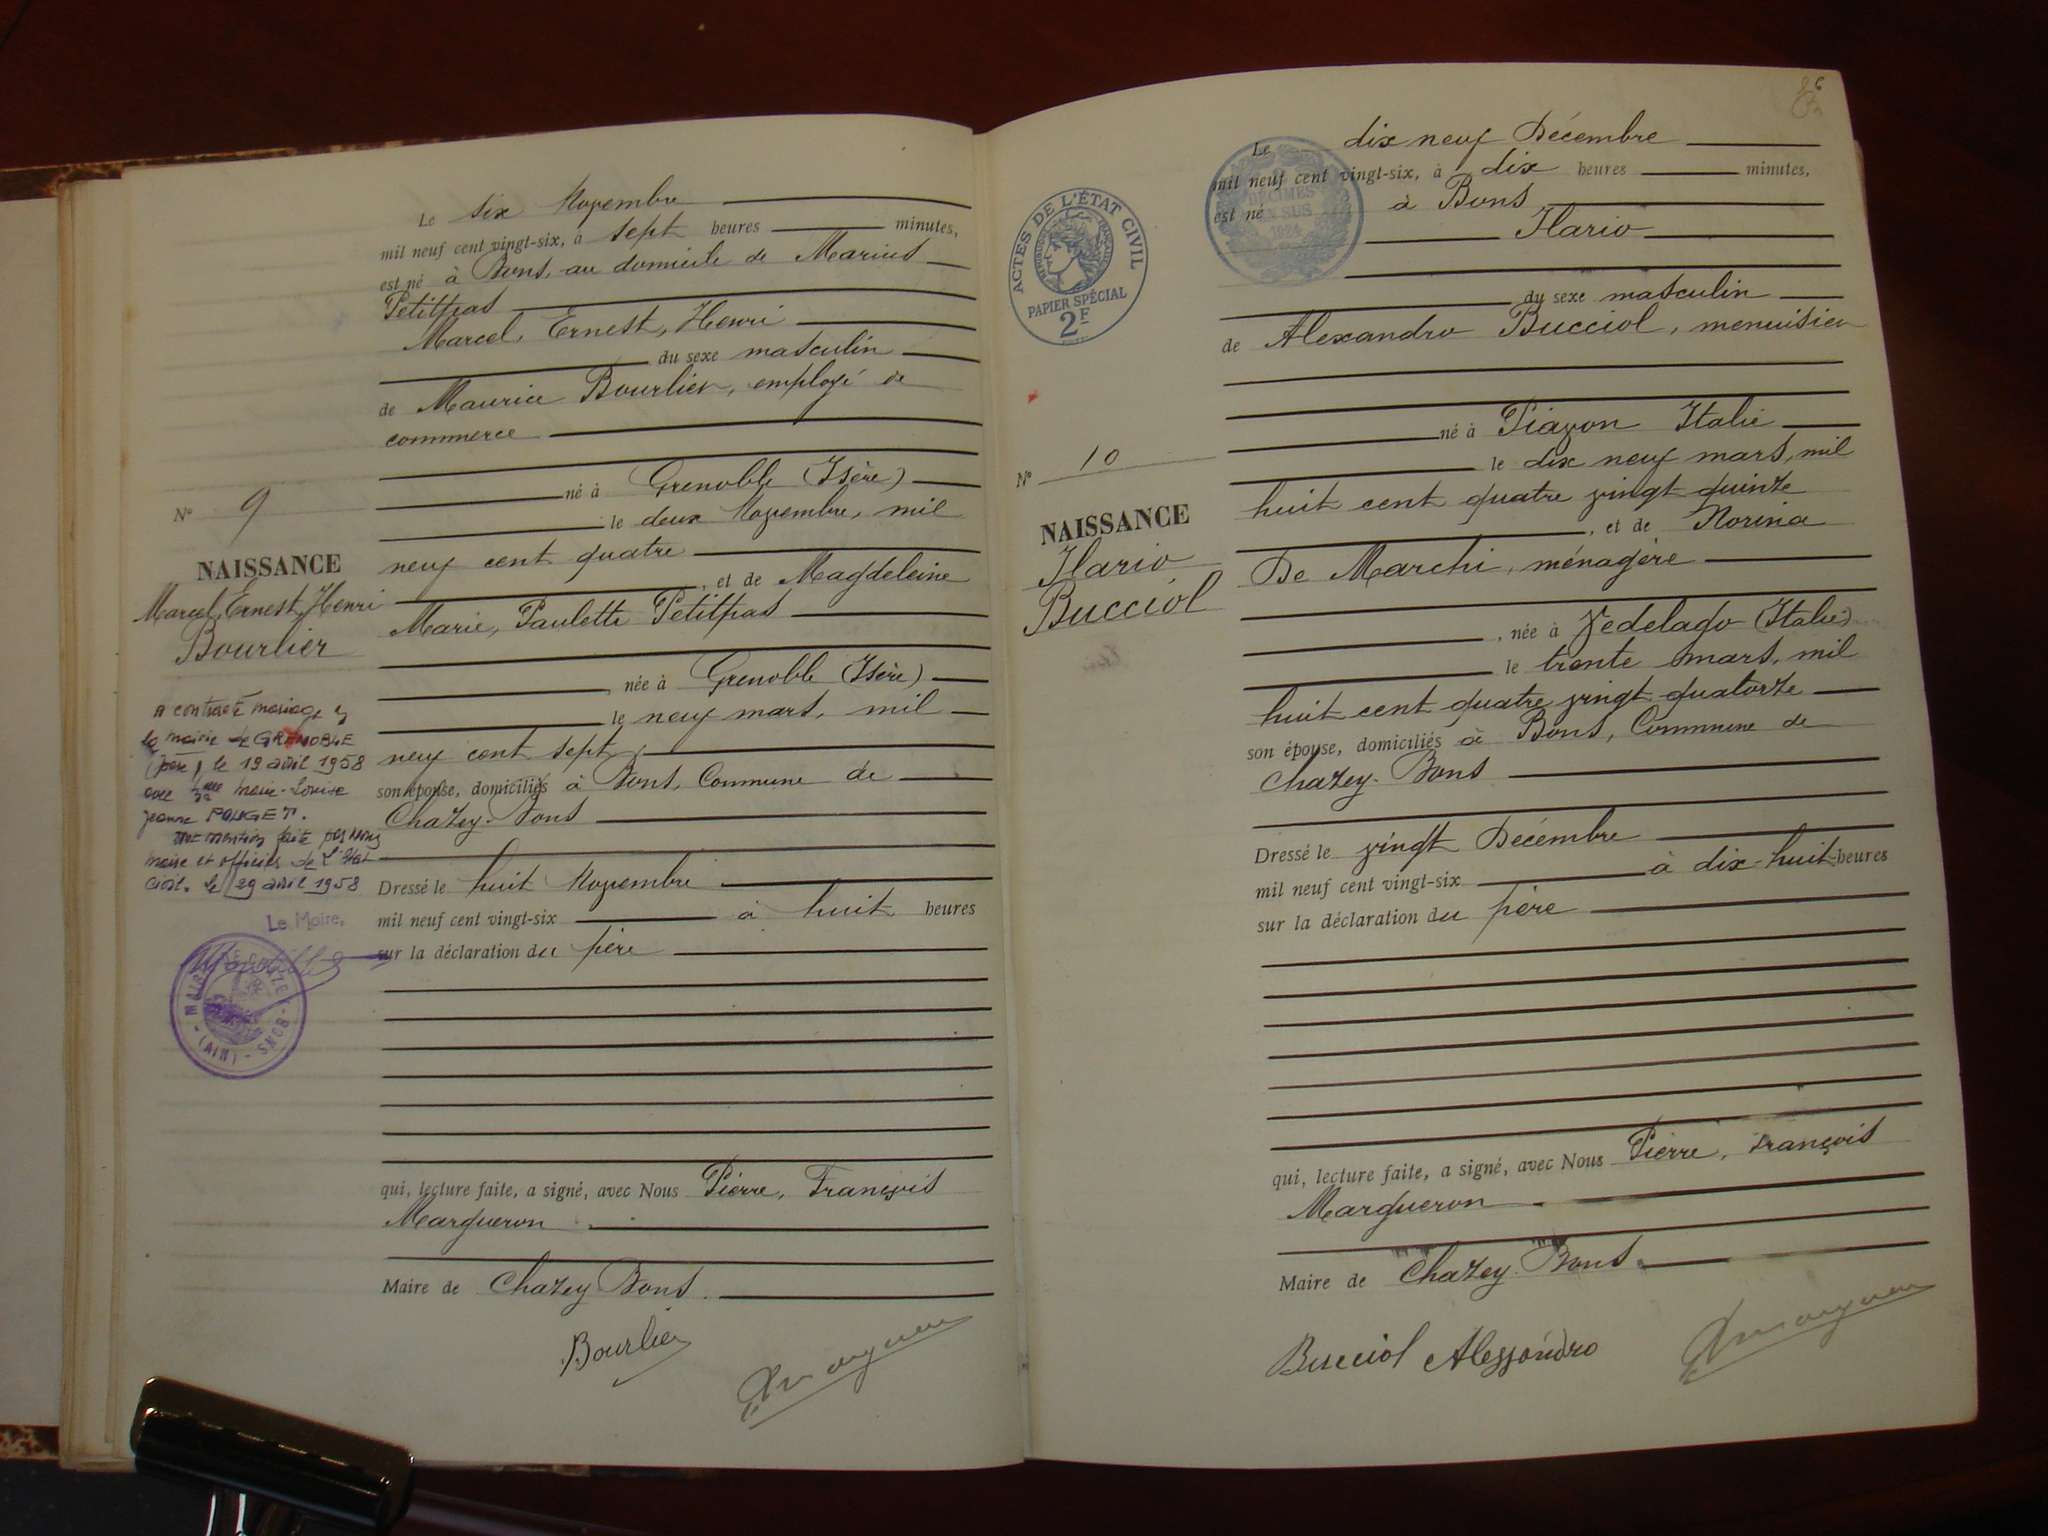 Le six Novembre
mil neuf cent vingt-six, à sept heures minutes,
est né à Bons, au domicile de Marius
Petitpas
Marcel, Ernest, Henri
du sexe masculin
de Maurice Bourlier, employé de
commerce
né à Grenoble (Isère)
le deux Novembre, mil
neuf cent quatre
, et de Magdeleine
Marie, Paulette Petitpas
, née à Grenoble (Isère)
le neuf mars, mil
neuf cent sept
son épouse, domiciliés à Bons, Commune de
Chazey-Bons
Dressé le huit Novembre
mil neuf cent vingt-six à huit heures
sur la déclaration du père
qui, lecture faite, a signé, avec Nous Pierre, François
Margueron
Maire de Chazey Bons.
Bourlier
N° 9
NAISSANCE
Marcel, Ernest, Henri
Bourlier
A contracté mariage à
la mairie de GRENOBLE
(Isère) le 19 avril 1958
avec Marie-Louise
Jeanne POUGET.
mention faite par nous
maire et officier de l'état
civil. le 29 avril 1958
Le Maire,
MAIRIE
BONS
(AIN)
86
Le dix neuf Décembre
mil neuf cent vingt-six, à dix heures minutes,
est né à Bons
Ilario
du sexe masculin
de Alexandro Bucciol, menuisier
né à Piavon Italie
le dix neuf mars, mil
huit cent quatre vingt quinze
, et de Norina
De Marchi, ménagère
, née à Vedelago (Italie)
le trente mars, mil
huit cent quatre vingt quatorze
son épouse, domiciliés à Bons, Commune de
Chazey-Bons
Dressé le vingt Décembre
mil neuf cent vingt-six à dix-huit heures
sur la déclaration du père
qui, lecture faite, a signé, avec Nous Pierre, François
Margueron
Maire de Chazey-Bons.
Bucciol Alessandro
ACTES DE L'ÉTAT CIVIL
RÉPUBLIQUE FRANÇAISE
PAPIER SPÉCIAL
2F
DÉCIMES
EN SUS
1924
N° 10
NAISSANCE
Ilario
Bucciol